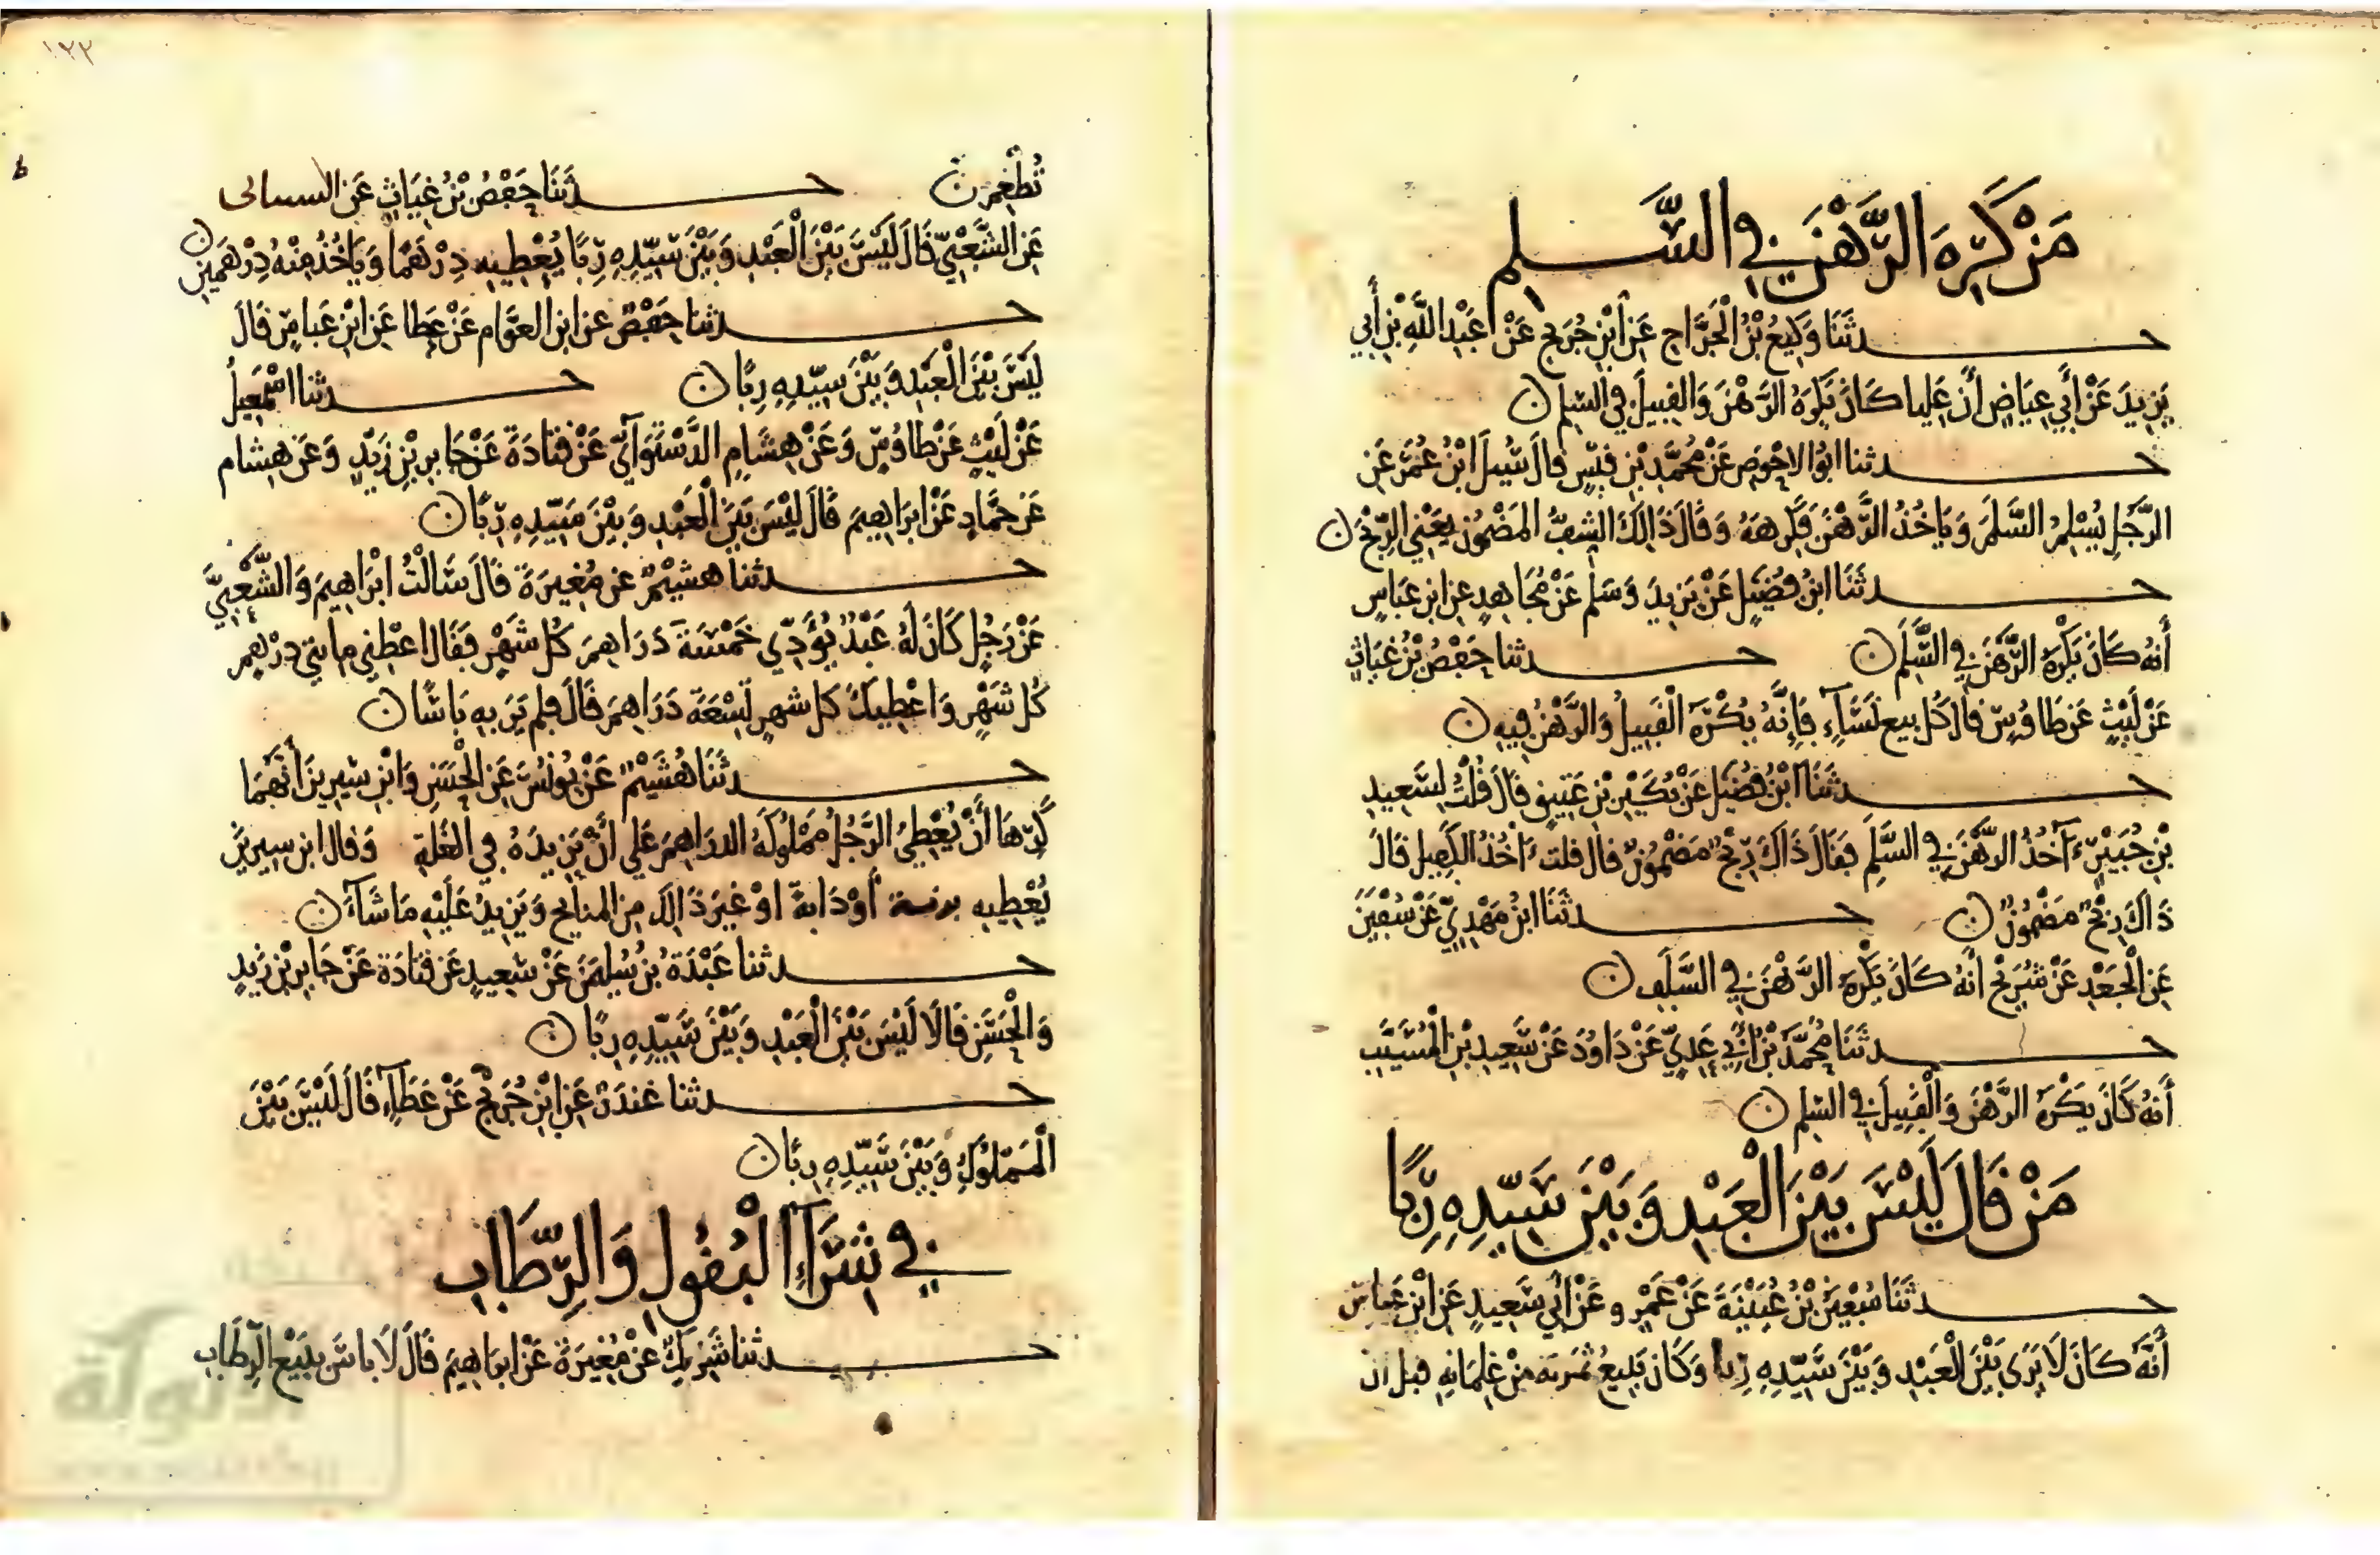 مَنْ كَرِهَ الرَّهْنَ فِي السَّلَمِ
حدثَنَا وَكِيعُ بْنُ الْجَرَّاحِ عَنِ ابْنِ جُرَيْجٍ عَنْ عَبْدِ اللَّهِ بْنِ أَبِي
يَزِيدَ عَنْ أَبِي عِيَاضٍ أَنَّ عَلِيا كَانَ يَكْرَهُ الرَّهْنَ وَالقَبِيلَ فِي السَّلَمِ
حدثنا ابُو الاحْوَصِ عَنْ مُحَمَّدِ بْنِ قَيْسٍ قالَ سُيِلَ ابْنُ عُمَرَ عَنِ
الرَّجُلِ يُسْلِمُ السَّلَمَ وَيَاخُذُ الرَّهْنَ فَكَرِهَهُ وَقَالَ ذَالِكَ الشِّفُّ المَضْمُون يَعْنِي الرِّبْحَ
حدثَنَا ابنُ فُضَيْلٍ عَنْ يَزِيدَ وَسَلْم عَنْ مُجَاهِدٍ عَنِ ابنِ عَبَّاسٍ
أَنهُ كَانَ يَكْرَهُ الرَّهْنَ فِي السَّلَمِ حدثنا حَفْصُ بْنُ غِيَاثٍ
عَنْ لَيْثٍ عَنْ طَاوُسٍ قالَ كُل بَيع نَسَاءٍ فَإِنَّهُ يُكْرَهُ الْقَبِيلُ وَالرَّهْنُ فِيهِ
حدثَنَا ابْنُ فُضَيْلٍ عَنْ بُكَيْرِ بْنِ عَتِيقٍ قالَ قُلْتُ لِسَعِيدِ
بْنِ جُبَيْرٍ ءَآخُذُ الرَّهْنَ فِي السَّلَمِ فَقَالَ ذَاكَ رِبْحٌ مَضْمُونٌ قال قلت ءَاخُذُ الكَفِيلَ قَالَ
ذَاكَ رِبْحٌ مَضْمُونٌ حدثَنَا ابنُ مَهْدِيٍّ عَنْ سُفْيَنَ
عَنِ الْجَعْدِ عَنْ شُرَيْحٍ انَّهُ كَانَ يَكْرَهُ الرَّهْنَ فِي السَّلَفِ
حدثَنَا مُحَمَّدُ بْنُ أَبِي عَدِيٍّ عَنْ دَاوُدَ عَنْ سَعِيدِ بْنِ الْمُسَيَّبِ
أَنهُ كَانَ يَكْرَهُ الرَّهْنَ وَالْقَبِيلَ فِي السَّلَمِ
مَنْ قَالَ لَيْسَ بَيْنَ الْعَبْدِ وَبَيْنَ سَيِّدِهِ رِبًا
حدثَنَا سُفْيَنُ بْنُ عُيَيْنَةَ عَنْ عَمْرٍو عَنْ أَبِي سَعِيدٍ عَنِ ابْنِ عَبَّاسٍ
أَنَّهُ كَانَ لَا يَرَى بَيْنَ الْعَبْدِ وَبَيْنَ سَيِّدِهِ رِبًا وَكَانَ يَبِيعُ ثَمَرَتَه مِنْ غِلْمَانِهِ قبل ان
تُطْعِمَ حدثَنَا حَفْصُ بْنُ غِيَاثٍ عَنِ الشيباني
عَنِ الشَّعْبِيِّ قَالَ لَيْسَ بَيْنَ الْعَبْدِ وَبَيْنَ سَيِّدِهِ رِبًا يُعْطِيهِ دِرْهَمًا وَيَاخُذُ مِنْهُ دِرْهَمَيْنِ
حدثنا حَفْصٌ عن ابنِ العَوَّامِ عَنْ عَطا عَنِ ابْنِ عَباسٍ قَالَ
لَيْسَ بَيْنَ الْعَبْدِ وَبَيْنَ سَيِّدِهِ رِبًا حدثنا اسْمَعِيلُ
عَنْ لَيْثٍ عَنْ طَاوُسٍ وَعَنْ هِشَامٍ الدَّسْتَوَآيِّ عَنْ قَتَادَةَ عَنْ جَابِرِ بْنِ زَيْدٍ وَعَن هِشام
عَن حَمَّادٍ عَنْ ابرَاهِيمَ قَالَ لَيْسَ بَيْنَ الْعَبْدِ وَبَيْنَ سَيِّدِهِ رِبًا
حدثنا هشيْمٌ عن مُغِيرَةَ قَالَ سَالْتُ ابْرَاهِيمَ وَالشَّعْبِيَّ
عَنْ رَجُلٍ كَانَ لَهُ عَبْدٌ يُؤَدِّي خَمْسَةَ دَرَاهِمَ كُل شَهْرٍ فَقَالَ اعْطِنِي مِايتي دِرْهَمٍ
كُل شَهْرٍ وَاعْطِيكَ كل شهرٍ تِسْعَةَ دَرَاهِمَ قَالَ فلم يَرَ بِهِ بَاسًا
حدثَنَا هُشَيْمٌ عَنْ يُونُسَ عَنِ الْحَسَنِ وَابْنِ سِيرِينَ أَنَّهُمَا
كَرِهَا أَنْ يُعْطِيَ الرَّجُلُ مَمْلُوكَهُ الدرَاهِمَ عَلَى أَنْ يَزِيدَهُ فِي الغَلةِ وَقال ابن سِيرِينَ
يُعْطِيهِ أَوْ دَابةً اوْ غَيْرَ ذَالِكَ مِنَ المتَاعِ وَيَزِيدُ عَلَيْهِ مَا شَآءَ
حدثنا عَبْدَةُ بْنُ سُلَيْمَنَ عَنْ سَعِيدٍ عَنْ قَتَادَةَ عَنْ جَابِرِ بْنِ زَيْدٍ
وَالْحَسَنِ قَالَا لَيْسَ بَيْنَ الْعَبْدِ وَبَيْنَ سَيِّدِهِ رِبًا
حدثنا غندَرٌ عَنِ ابْنِ جُرَيْجٍ عَنْ عَطَآءٍ قَالَ لَيْسَ بَيْنَ
الْمَمْلُوكِ وَبَيْنَ سَيِّدِهِ رِبًا
فِي شِرَآءِ الْبُقُولِ وَالرِّطَابِ
حدثنا شَرِيكٌ عَنْ مُغِيرَةَ عَنْ ابرَاهِيمَ قَالَ لَا باسَ بِبَيْعِ الرِّطَابِ